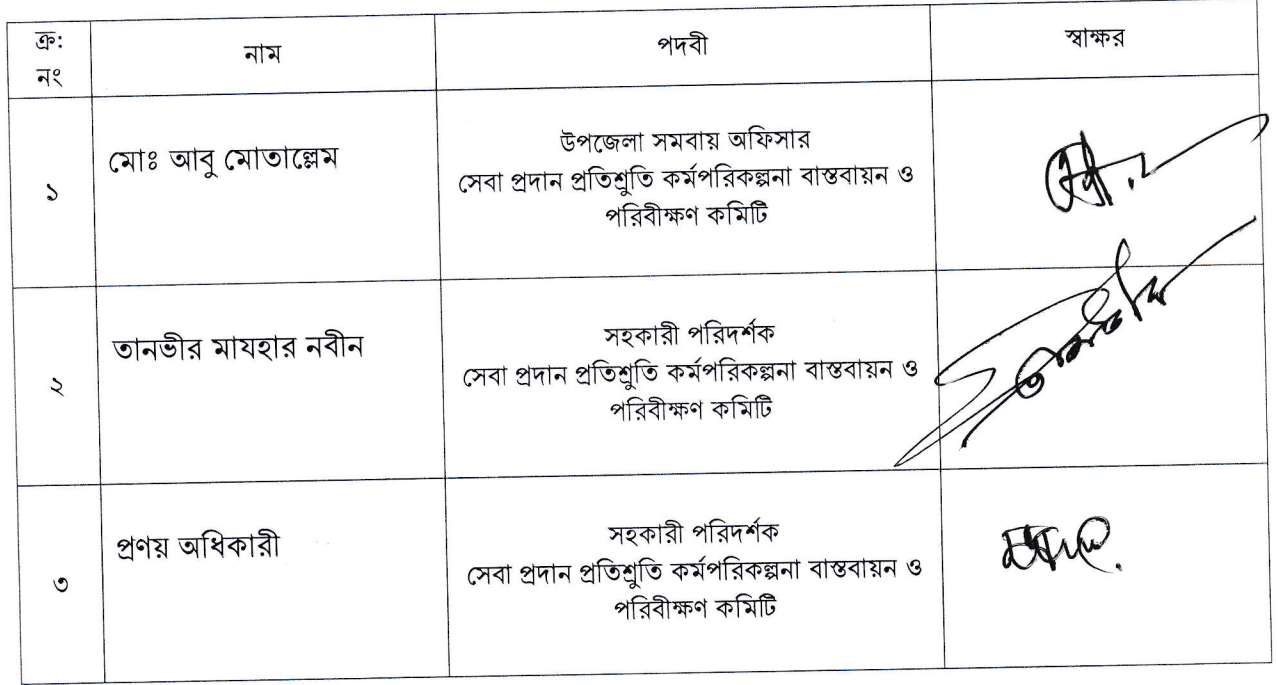 ক্র: নাম পদবী স্বাক্ষর
নং
মোঃ আবু মোতাল্লেম
উপজেলা সমবায় অফিসার
১ সেবা প্রদান প্রতিশ্রুতি কর্মপরিকল্পনা বাস্তবায়ন ও
পরিবীক্ষণ কমিটি
তানভীর মাযহার নবীন
সহকারী পরিদর্শক
২ সেবা প্রদান প্রতিশ্রুতি কর্মপরিকল্পনা বাস্তবায়ন ও
পরিবীক্ষণ কমিটি
প্রণয় অধিকারী
সহকারী পরিদর্শক
৩ সেবা প্রদান প্রতিশ্রুতি কর্মপরিকল্পনা বাস্তবায়ন ও
পরিবীক্ষণ কমিটি